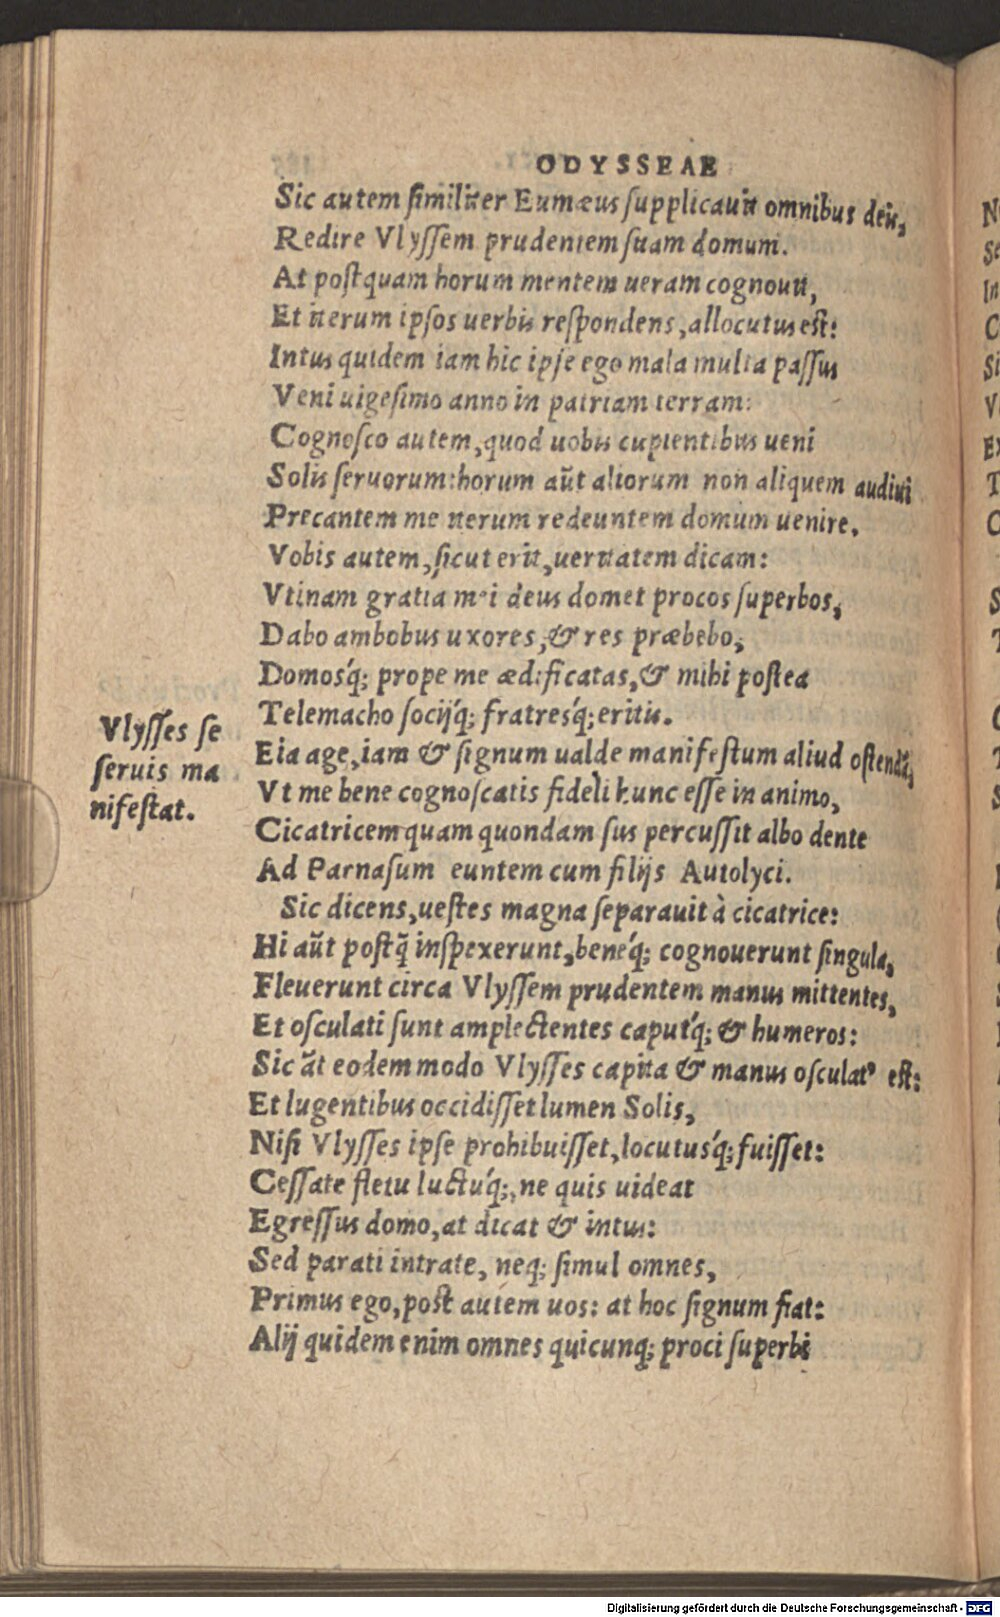 ODYSSEAE
Sic autem similiter Eumæus supplicauit omnibus deis,
Redire Vlyssem prudentem suam domum.
At postquam horum mentem ueram cognouit,
Et iterum ipsos uerbis respondens, allocutus est:
Intus quidem iam hic ipse ego mala multa passus
Veni uigesimo anno in patriam terram:
Cognosco autem, quod uobis cupientibus ueni
Solis seruorum: horum aūt aliorum non aliquem audiui
Precantem me iterum redeuntem domum uenire.
Vobis autem, sicut erit, ueritatem dicam:
Vtinam gratia mei deus domet procos superbos,
Dabo ambobus uxores, & res præbebo,
Domosq́; prope me ædificatas, & mihi postea
Telemacho socijq́; fratresq́; eritis.
Vlysses se
seruis ma
nifestat.
Eia age, iam & signum ualde manifestum aliud ostendā,
Vt me bene cognoscatis fideli hunc esse in animo,
Cicatricem quam quondam sus percussit albo dente
Ad Parnasum euntem cum filijs Autolyci.
Sic dicens, uestes magna separauit à cicatrice:
Hi aūt postq̄ inspexerunt, beneq́; cognouerunt singula,
Fleuerunt circa Vlyssem prudentem manus mittentes,
Et osculati sunt amplectentes caputq́; & humeros:
Sic āt eodem modo Vlysses capita & manus osculatꝰ est:
Et lugentibus occidisset lumen Solis,
Nisi Vlysses ipse prohibuisset, locutusq́; fuisset:
Cessate fletu luctuq́;, ne quis uideat
Egressus domo, at dicat & intus:
Sed parati intrate, neq; simul omnes,
Primus ego, post autem uos: at hoc signum fiat:
Alij quidem enim omnes quicunq; proci superbi
Digitalisierung gefördert durch die Deutsche Forschungsgemeinschaft - DFG